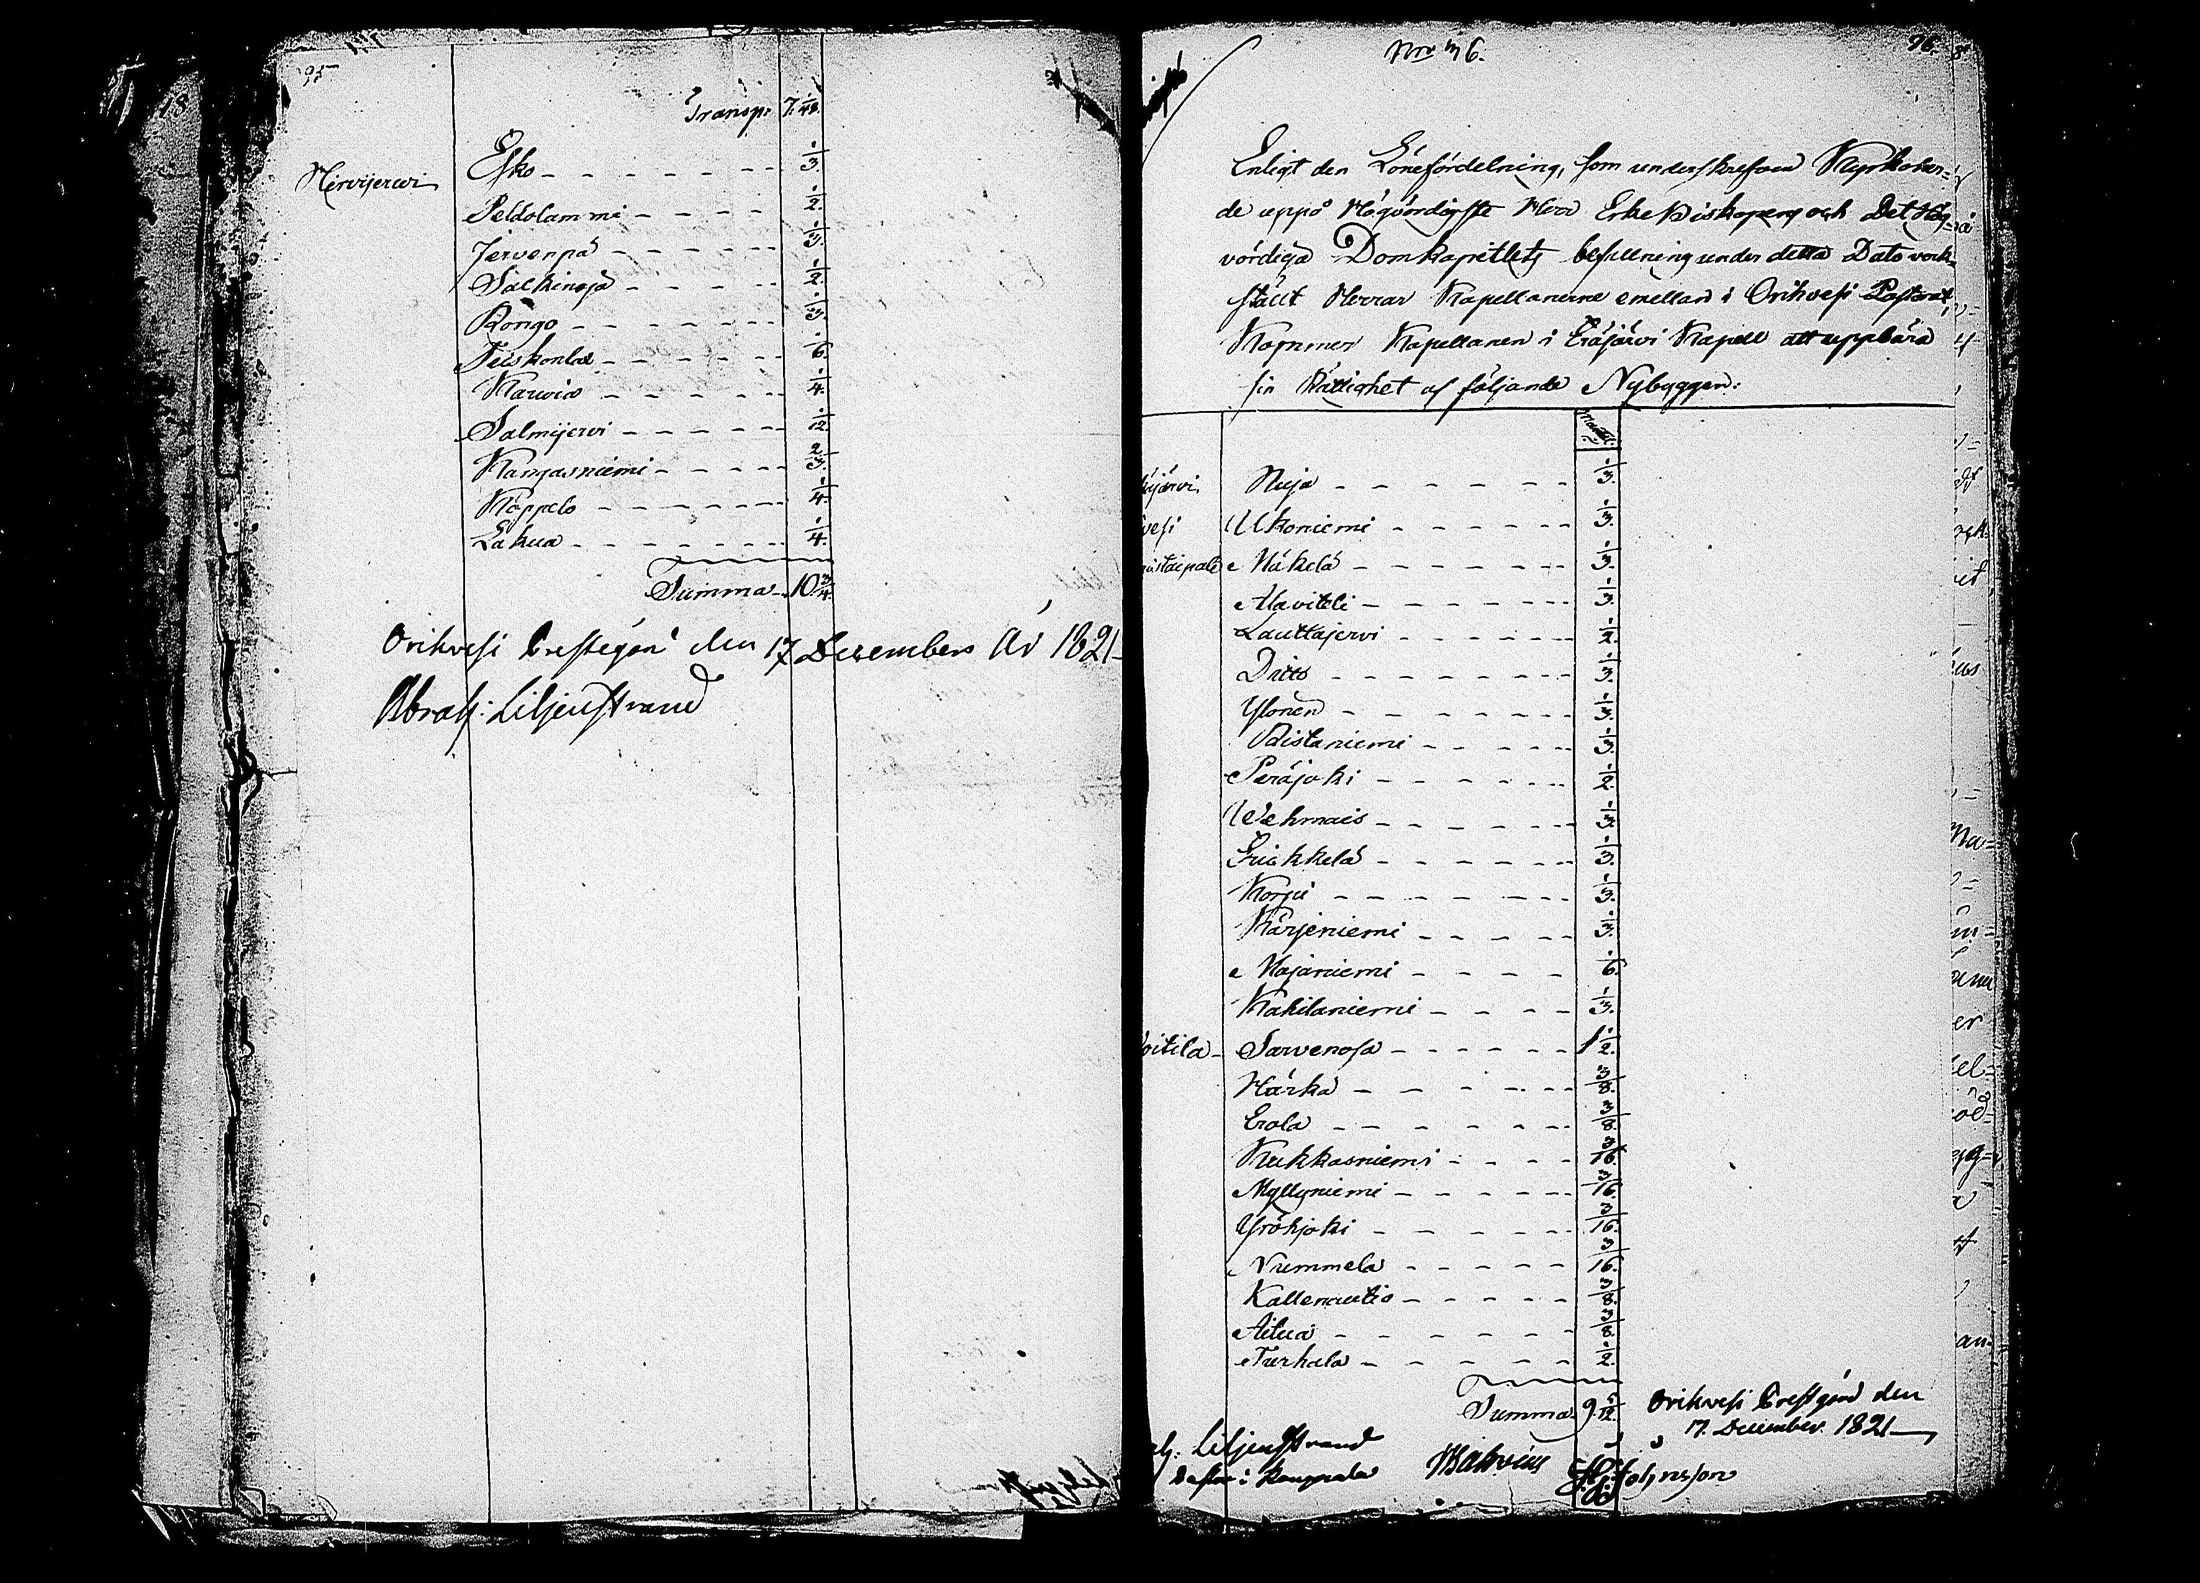 95
Transp: 7. 1/48.
Hirvijerwi Esko 1/3.
Peldolammi 1/2.
Jervenpä 1/3.
Sälkinojä 1/2.
Röngo 1/3.
Teiskonlax 1/6.
Karwia 1/4.
Salmijerwi 1/12.
Kangasniemi 2/3.
Koppelo 1/4.
Lakua 1/4.
Summa 10 3/4.
Orihvesi Prestegård den 17 December År 1821
Abrah: Liljenstrand
Nro 36.
96.
Enligt den Lönefördelning, som underskrefven Kyrkoher=
de uppå Högvördigste Herr ErkeBiskopens och Det Hög=
vördiga Domkapitlets befallning under detta Dato verk=
stält Herrar Kapellanerne emellan i Orihvesi Pastorat,
Kommer Kapellanen i Eräjärvi Kapell att uppbära
sin Rättighet af följande Nybyggen:
Mantal.
järvi, Nuja 1/3.
vesi Ukoniemi 1/3.
taipale Näkelä 1/3.
Alavitili 1/3.
Lauttajervi 1/2.
1/3.
Ylönen 1/3.
Ristaniemi 1/3.
Peräjoki 1/2.
Wehmais 1/3.
1/3.
Korpi 1/3.
Kärjeniemi 1/3.
Majaniemi 1/6.
Kahilaniemi 1/3.
oitila Sarvenoja 1 1/2.
Härkä 3/8.
Erola 3/8.
Kukkasniemi 3/16.
Myllyniemi 3/16.
Yröhjoki 3/16.
Nummela 3/16.
Kallenautio 3/8.
Aitua 3/8.
Turhala 1/2.
Summa 9. 5/12.
Orihvesi Prestgård den
17. December 1821
Liljenstrand
Pastor i Kangasala
Johnsson